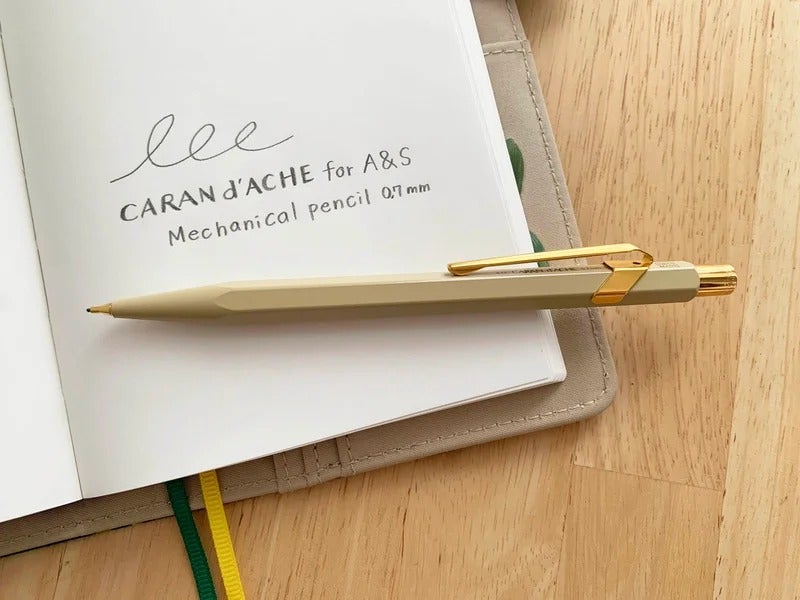 CARAN d'ACHE for A&S
Mechanical pencil 0.7mm
CARAN d'ACHE